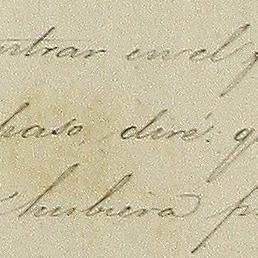 ntrar en el
paso, diré: q
hubiera p